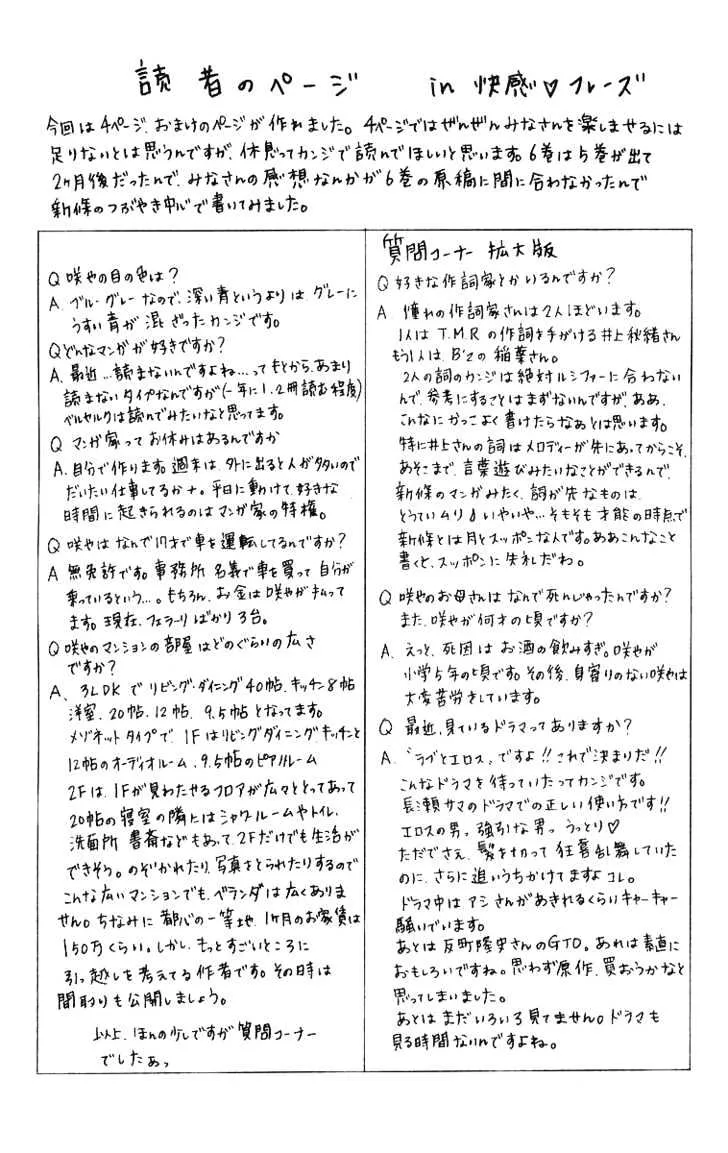 読者のページ in 快感♡フレーズ
今回は4ページ、おまけのページが作れました。4ページではぜんぜんみなさんを楽しませるには
足りないとは思うんですが、休憩ってカンジで読んでほしいと思います。6巻は5巻が出て
2ヶ月後だったんで、みなさんの感想なんかが6巻の原稿に間に合わなかったんで
新條のつぶやき中心で書いてみました。
Q 咲也の目の色は？
A ブルーグレーなので、深い青というよりはグレーに
うすい青が混ざったカンジです。
Qどんなマンガが好きですか？
A、最近…読まないんですよね…ってもとから、あまり
読まないタイプなんですが(一年に1、2冊読む程度)
ベルセルクは読んでみたいなと思ってます。
Q マンガ家ってお休みはあるんですか
A、自分で作ります。週末は、外に出ると人が多いので
だいたい仕事してるかナ。平日に動けて、好きな
時間に起きられるのはマンガ家の特権。
Q 咲也はなんで17才で車を運転してるんですか？
A 無免許です。事務所名義で車を買って自分が
乗っているという…。もちろん、お金は咲也が払って
ます。現在、フェラーリばかり3台。
Q咲也のマンションの部屋はどのぐらいの広さ
ですか？
A、3LDKでリビング・ダイニング40帖、キッチン8帖
洋室、20帖、12帖、9.5帖となってます。
メゾネットタイプで、1Fはリビングダイニングキッチンと
12帖のオーディオルーム、9.5帖のピアノルーム
2Fは、1Fが見わたせるフロアが広々ととってあって
20帖の寝室の隣にはシャワールームやトイレ、
洗面所、書斎などもあって、2Fだけでも生活が
できそう。のぞかれたり、写真をとられたりするので
こんな広いマンションでも、ベランダは広くありま
せん。ちなみに都心の一等地、1ヶ月のお家賃は
150万くらい。しかし、もっとすごいところに
引っ越しを考えてる作者です。その時は
間取りも公開しましょう。
以上、ほんの少しですが質問コーナー
でしたぁっ
質問コーナー 拡大版
Q 好きな作詞家とかいるんですか？
A 憧れの作詞家さんは2人ほどいます。
1人はT.M.Rの作詞を手がける井上秋緒さん
もう1人は、B'zの稲葉さん。
2人の詞のカンジは絶対ルシファーに合わない
んで、参考にすることはまずないんですが、ああ、
こんなにかっこよく書けたらなぁとは思います。
特に井上さんの詞はメロディーが先にあってからこそ、
あそこまで、言葉遊びみたいなことができるんで、
新條のマンガみたく、詞が先なものは、
とうていムリ♪いやいや…そもそも才能の時点で
新條とは月とスッポンなんです。ああこんなこと
書くと、スッポンに失礼だわ。
Q 咲也のお母さんはなんで死んじゃったんですか？
また、咲也が何才の頃ですか？
A、えっと、死因はお酒の飲みすぎ。咲也が
小学5年の頃です。その後、身寄りのない咲也は
大変苦労をしています。
Q 最近、見ているドラマってありますか？
A、“ラブとエロス„ですよ!!これで決まりだ!!
こんなドラマを待っていたってカンジです。
長瀬サマのドラマでの正しい使い方です!!
エロスの男っ強引な男っ うっとり♡
ただでさえ、髪を切って狂喜乱舞していた
のに、さらに追いうちかけてますよコレ。
ドラマ中はアシさんがあきれるくらいキャーキャー
騒いでいます。
あとは反町隆史さんのGTO。あれは素直に
おもしろいですね。思わず原作、買おうかなと
思ってしまいました。
あとはまだいろいろ見てません。ドラマも
見る時間ないんですよね。